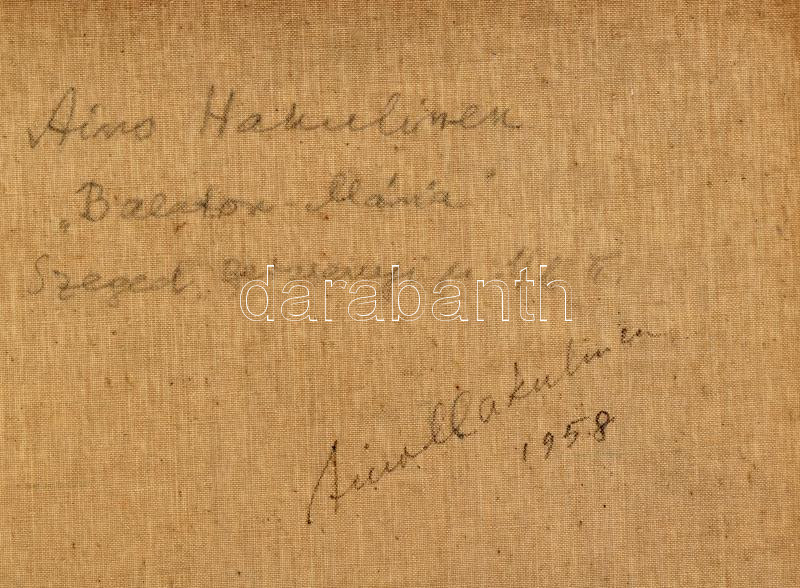 Aino Hakulinen
„Balaton-Mária"
Szeged,
darabanth
Aino Hakulinen
1958